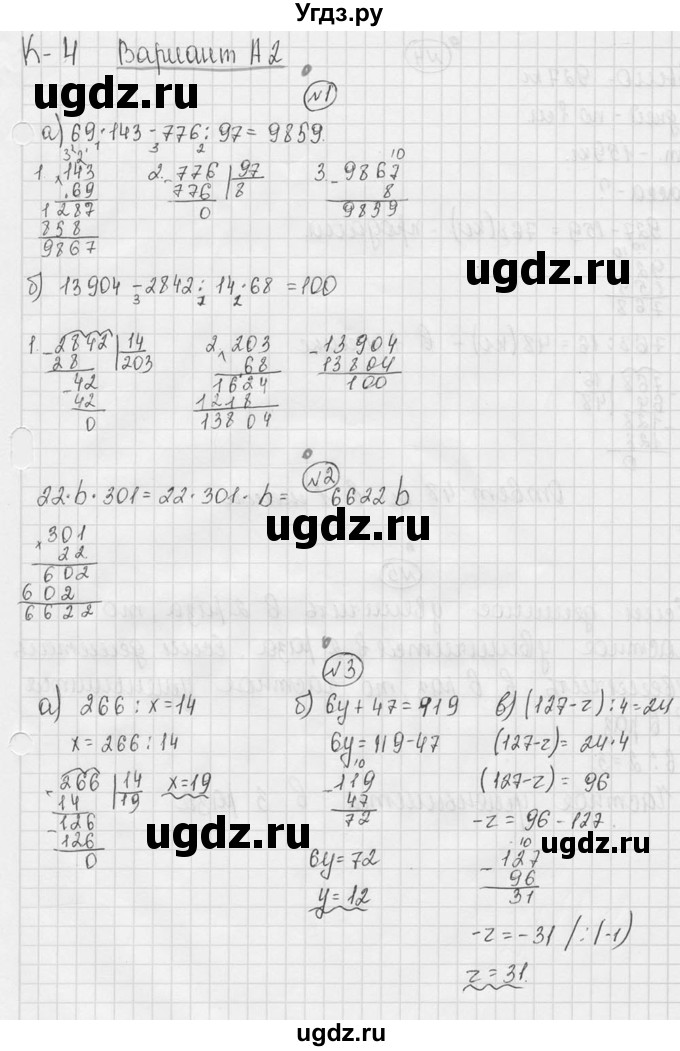 Угдз.ру
К-4 Вариант А2
№1
а) 69·143-776:97=9859.
3 2
3 2 1
1. 143 2. 776 97 3. 9867
× 69 776 8 8
1287 0 9859
858
9867
б) 13904-2842:14·68=100
3 1 2
1. 2842 14 2. 203 -13904
28 203 × 68 13804
-42 1624 100
42 1218
0 13804
№2
22·b·301=22·301·b= 6622b
301
× 22
602
602
6622
№3
а) 266:x=14 б) 6y+47=119 в) (127-z):4=24
x=266:14 6y=119-47 (127-z)=24·4
-266 14 x=19 -119 (127-z)=96
14 19 47 -z=96-127
-126 72 -127
126 6y=72 96
0 y=12 31
-z=-31 /:(-1)
z=31.
ugdz.ru
ugdz.ru
ugdz.ru
ugdz.ru
ugdz.ru
ugdz.ru
ugdz.ru
ugdz.ru
ugdz.ru
ugdz.ru